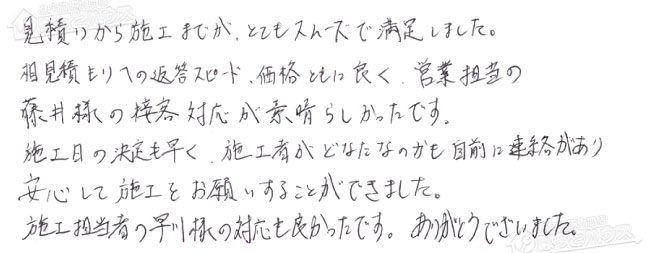 見積りから施工までが、とてもスムーズで満足しました。
相見積もりへの返答スピード、価格ともに良く、営業担当の
藤井様の接客対応が素晴らしかったです。
施工日の決定も早く、施工者がどなたなのかも自前に連絡があり
安心して施工をお願いすることができました。
施工担当者の早川様の対応も良かったです。ありがとうございました。